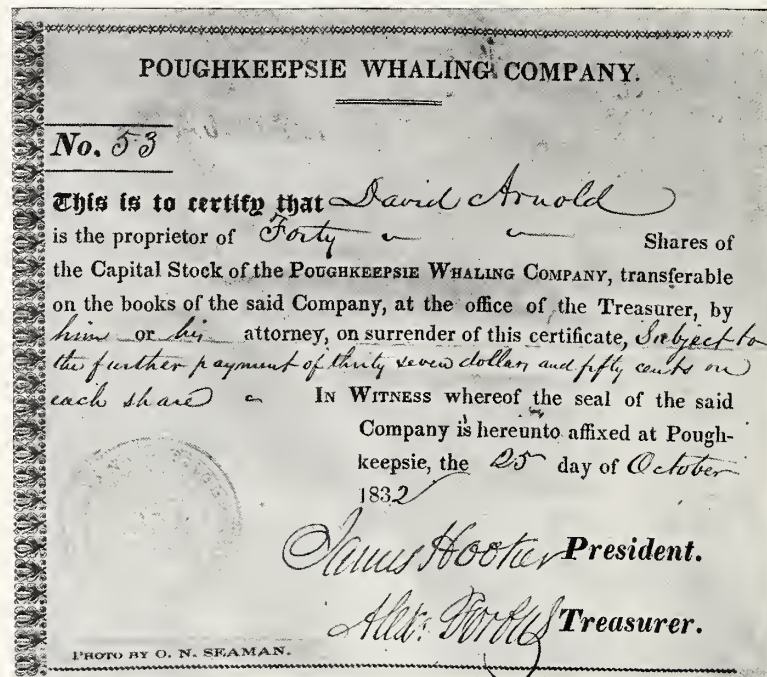 POUGHKEEPSIE WHALING COMPANY.
No. 53
This is to certify that David Arnold
is the proprietor of Forty Shares of
the Capital Stock of the POUGHKEEPSIE WHALING COMPANY, transferable
on the books of the said Company, at the office of the Treasurer, by
him or his attorney, on surrender of this certificate, Subject to
the further payment of thirty seven dollars and fifty cents on
each share IN WITNESS whereof the seal of the said
Company is hereunto affixed at Pough-
keepsie, the 25 day of October
1832
James Hooker President.
Alex. Forbus Treasurer.
PHOTO BY O. N. SEAMAN.